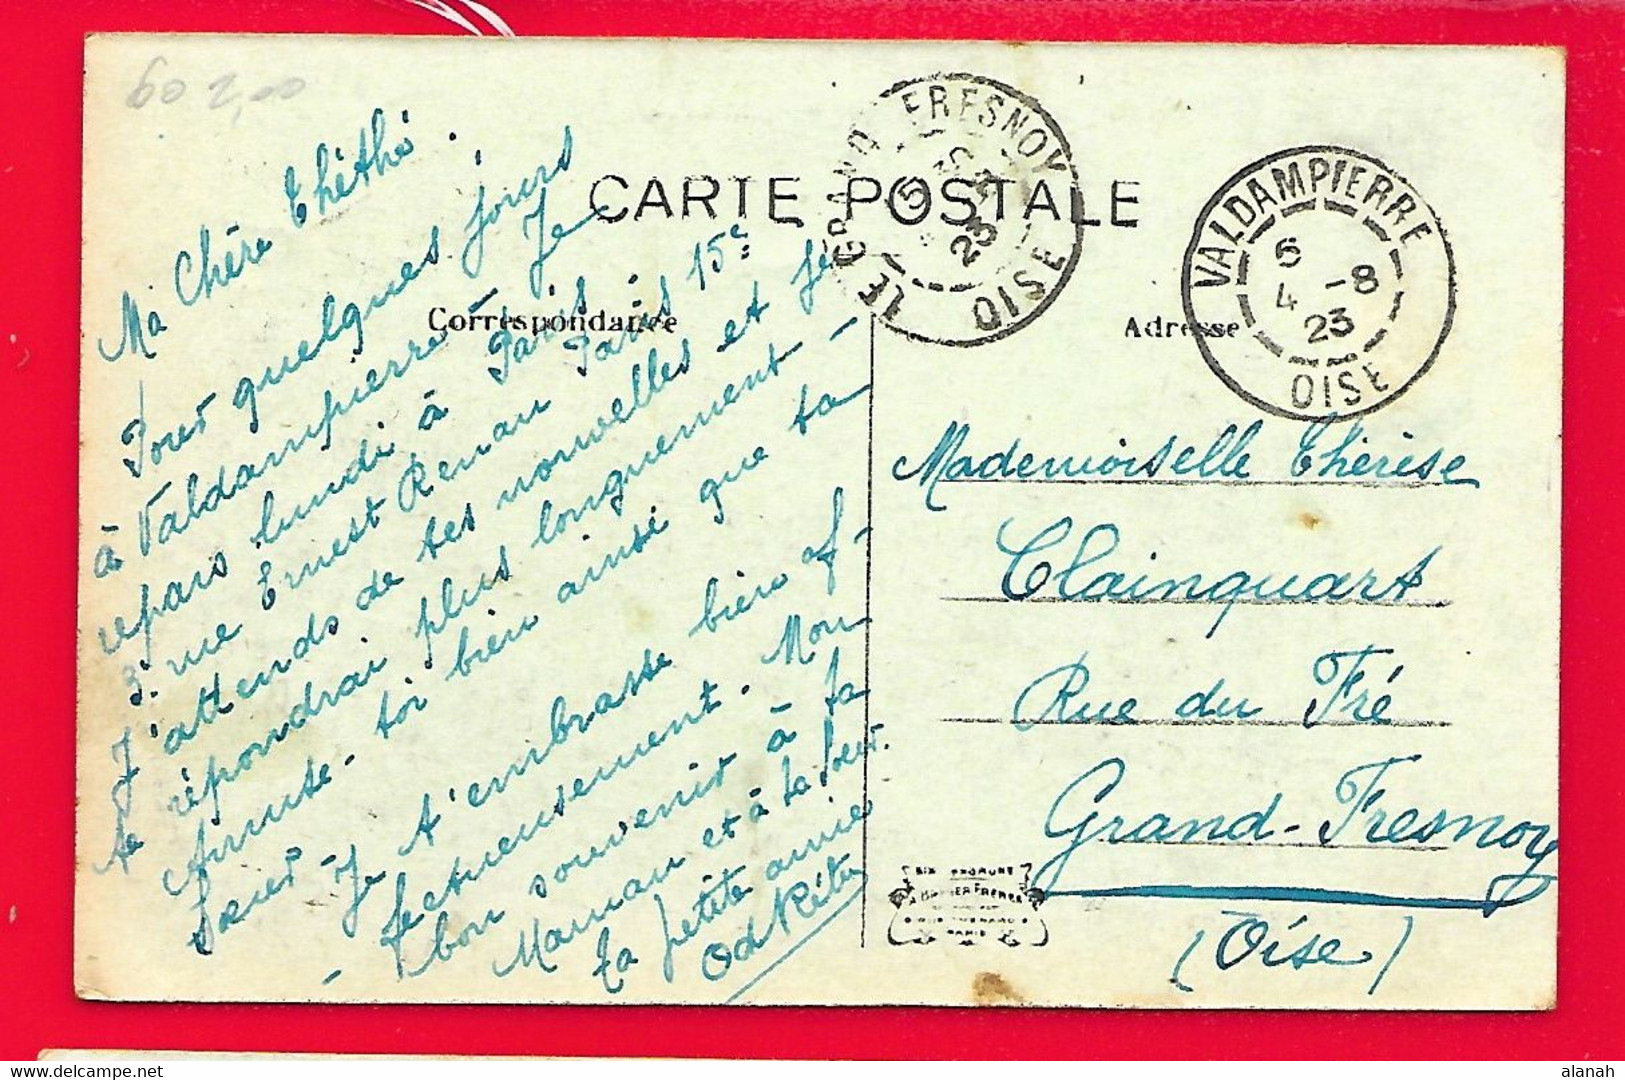 60 2,00
CARTE POSTALE
Correspondance
Adresse
LE GRAND FRESNOY
5
23
OISE
VALDAMPIERRE
6
4 -8
23
OISE
Ma Chère Théthé.
Pour quelques jours
à Valdampierre - Je
repars lundi à Paris
3. rue Ernest Renan Paris 15e
J'attends de tes nouvelles et je
te répondrai plus longuement -
Amuse-toi bien ainsi que ta
Sœur - Je t'embrasse bien af-
fectueusement. Mon
bon souvenir à ta
Maman et à ta Sœur.
Ta petite amie
Mademoiselle Thérèse
Clainquart
Rue du Fré
Grand-Fresnoy
(Oise)
PARIS
alanah